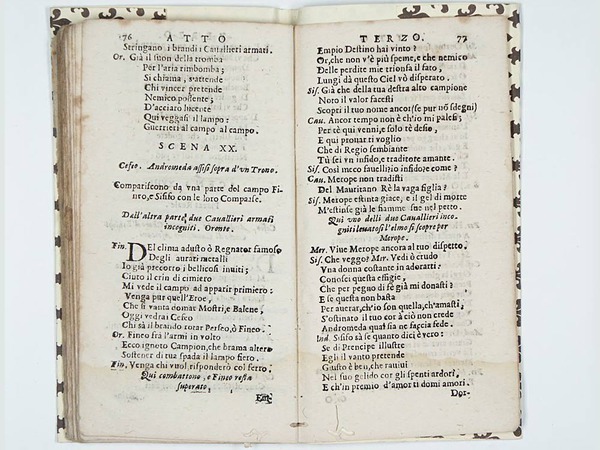 76 ATTO
Stringano i brandi i Cauallieri armati.
Or. Già il suon della tromba
Per l'aria rimbomba;
Si chiama, s'attende
Chi vincer pretende
Nemico possente;
D'acciaro lucente
Qui veggasi il lampo:
Guerrieri al campo al campo.
SCENA XX.
Cefeo. Andromeda assisi sopra d'vn Trono.
Compariscono da vna parte del campo Fi-
neo, e Sisifo con le loro Comparse.
Dall'altra parte due Cauallieri armati
incogniti. Oronte.
Fin. DEl clima adusto ò Regnator famoso
Degli aurati metalli
Io già precorro i bellicosi inuiti;
Cinto il crin di cimiero
Mi vede il campo ad apparir primiero:
Venga pur quell'Eroe,
Che si vanta domar Mostri, e Balene,
Oggi vedrai Cefeo
Chi sà il brando rotar Perseo, ò Fineo.
Or. Fineo frà l'armi in volto
Ecco ignoto Campion, che brama altero
Sostener di tua spada il lampo fiero.
Fin. Venga chi vuol risponderò col ferro.
Qui combattono, e Fineo resta
superato.
TERZO. 77
Empio Destino hai vinto?
Or, che non v'è più speme, e che nemico
Delle perdite mie trionfa il fato,
Lungi dà questo Ciel vò disperato.
Sis. Già che della tua destra alto campione
Noto il valor facesti
Scopri il tuo nome ancor (se pur nō sdegni)
Cau. Ancor tempo non è ch'io mi palesi;
Per tè qui venni, e solo tè desio,
E qui prouar ti voglio
Che di Regio sembiante
Tù sei vn infido, e traditore amante.
Sis. Così meco fauelli? io infido? e come?
Cau. Merope non tradisti
Del Mauritano Rè la vaga figlia?
Sis. Merope estinta giace, e il gel di morte
M'estinse già le fiamme sue nel petto.
Qui vno delli due Cauallieri inco-
gniti leuatosi l'elmo si scopre per
Merope.
Mer. Viue Merope ancora al tuo dispetto.
Sis. Che veggo? Mer. Vedi ò crudo
Vna donna costante in adorarti?
Conosci questa effigie,
Che per pegno di fè già mi donasti?
E se questa non basta
Per auerar, ch'io son quella, ch'amasti;
S'ostinato il tuo cor à ciò non crede
Andromeda qual sia ne faccia fede.
Ind. Sisifo sà se quanto dici è vero:
Se di Prencipe illustre
Egli il vanto pretende
Giusto è ben, che rauuiui
Nel suo gelido cor gli spenti ardori,
E ch'in premio d'amor ti domi amori.
Dor-